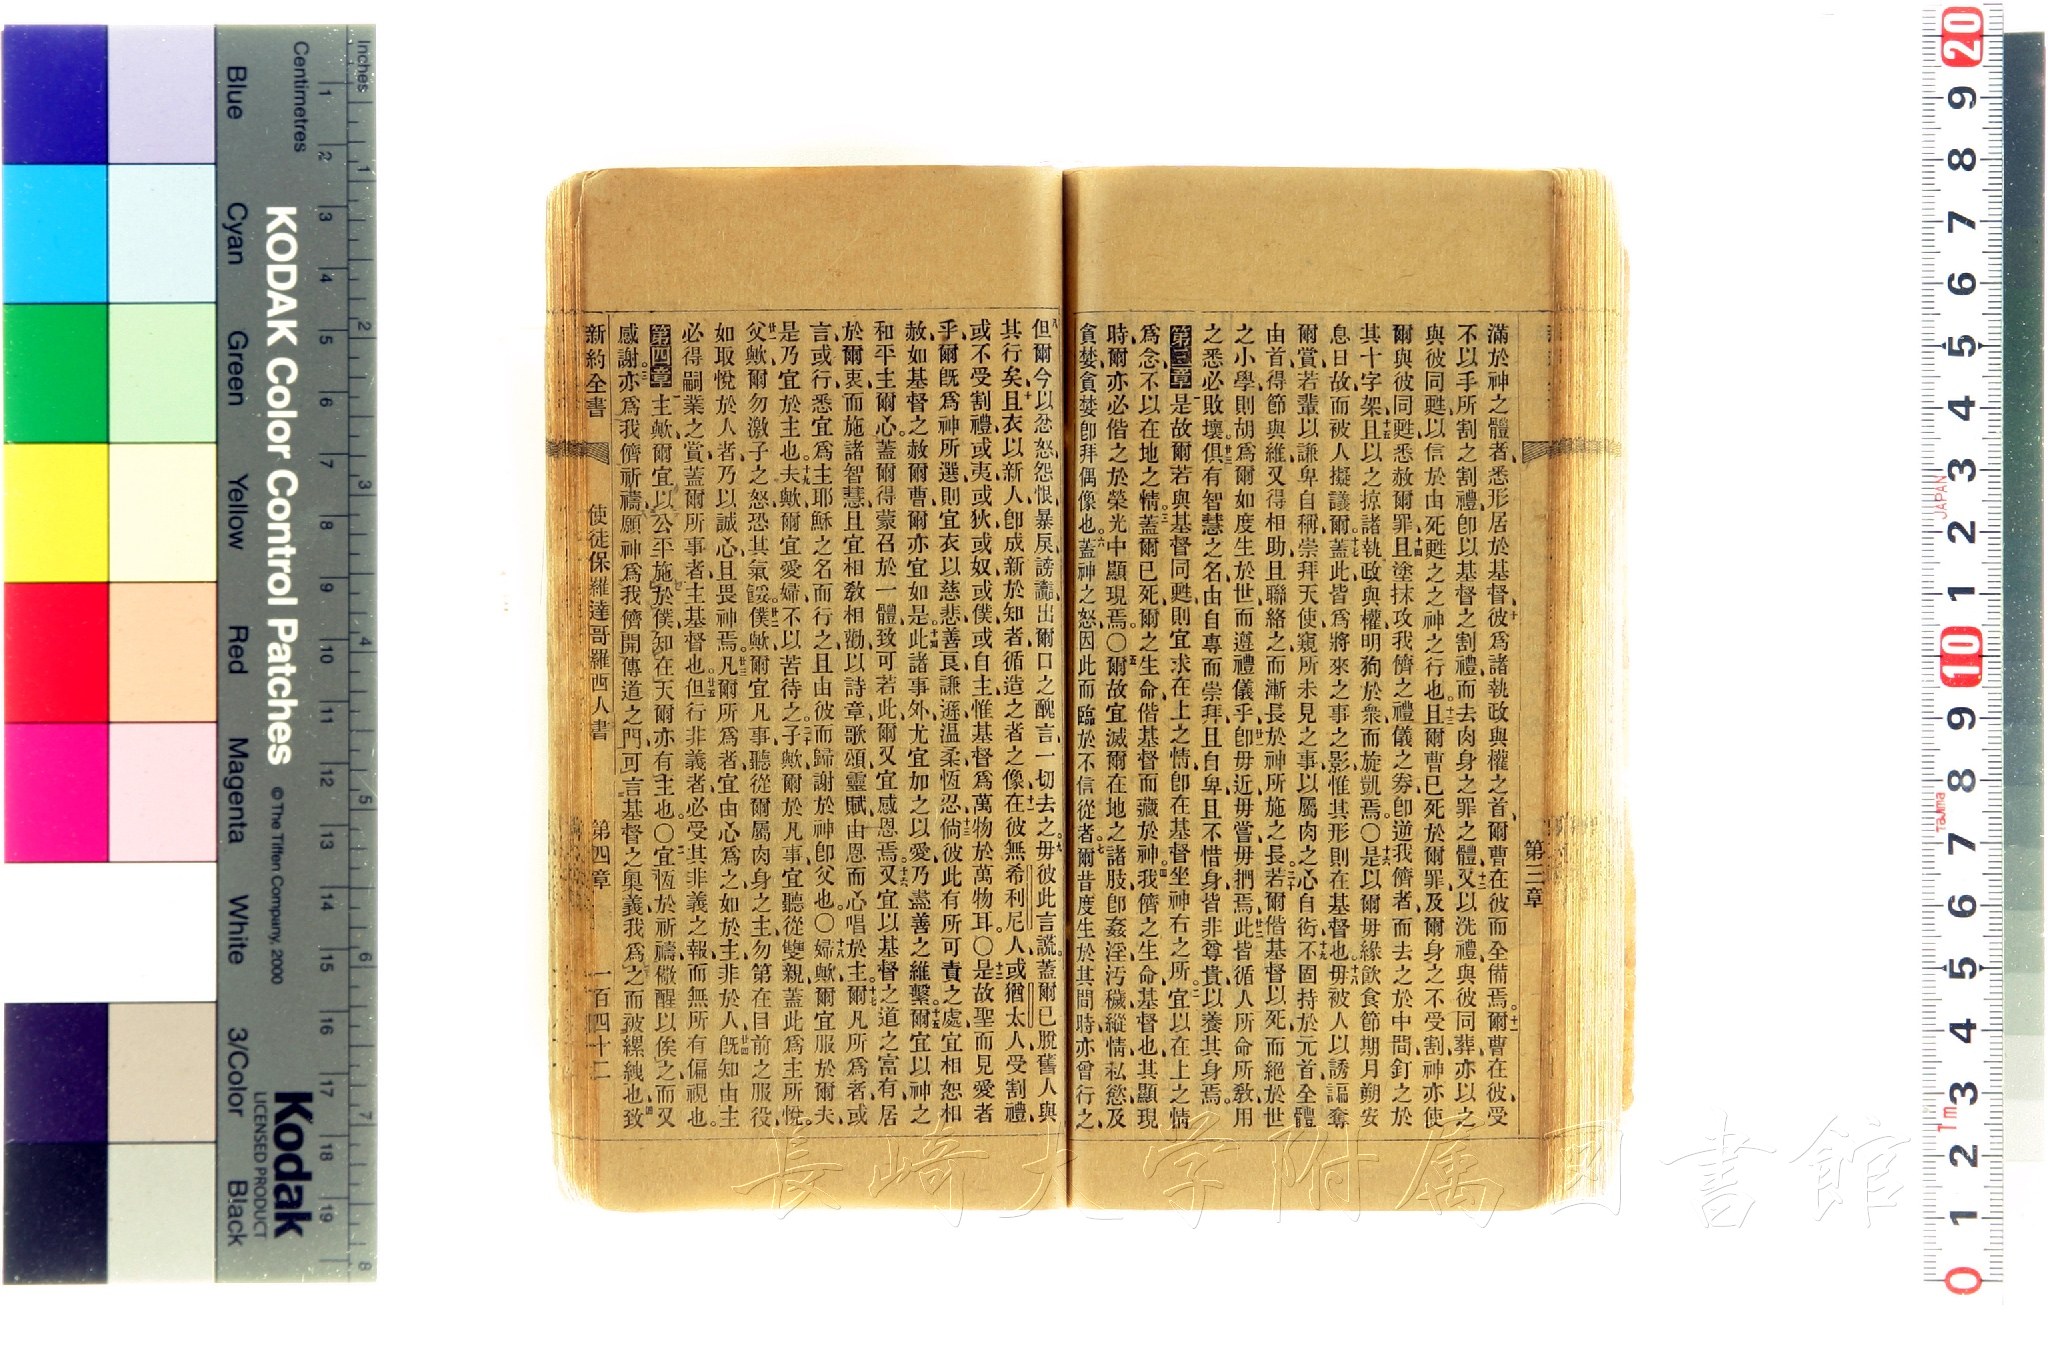 滿於神之體者悉形居於基督彼爲諸執政與權之首爾曹在彼而全備焉爾曹在彼受
不以手所割之割禮卽以基督之割禮而去肉身之罪之體又以洗禮與彼同葬亦以之
與彼同甦以信於由死甦之之神之行也且爾曹已死於爾罪及爾身之不受割神亦使
爾與彼同甦悉赦爾罪且塗抹攻我儕之禮儀之券卽逆我儕者而去之於中間釘之於
其十字架且以之掠諸執政與權明狥於衆而旋凱焉〇是以爾毋緣飲食節期月朔安
息日故而被人擬議爾蓋此皆爲將來之事之影惟其形則在基督也毋被人以誘謳奪
爾賞若輩以謙卑自稱崇拜天使窺所未見之事以屬肉之心自衒不固持於元首全體
由首得節與維又得相助且聯絡之而漸長於神所施之長若爾偕基督以死而絕於世
之小學則胡爲爾如度生於世而遵禮儀乎卽毋近毋嘗毋捫焉此皆循人所命所敎用
之悉必敗壞俱有智慧之名由自專而崇拜且自卑且不惜身皆非尊貴以養其身焉
第三章 是故爾若與基督同甦則宜求在上之情卽在基督坐神右之所宜以在上之情
爲念不以在地之情蓋爾已死爾之生命偕基督而藏於神我儕之生命基督也其顯現
時爾亦必偕之於榮光中顯現焉〇爾故宜滅爾在地之諸肢卽姦淫汚穢縱情私慾及
貪婪貪婪卽拜偶像也蓋神之怒因此而臨於不信從者爾昔度生於其間時亦曾行之
第三章
但爾今以忿怒怨恨暴戾謗讟出爾口之醜言一切去之毋彼此言謊蓋爾已脫舊人與
其行矣且衣以新人卽成新於知者循造之者之像在彼無希利尼人或猶太人受割禮
或不受割禮或夷或狄或奴或僕或自主惟基督爲萬物於萬物耳〇是故聖而見愛者
乎爾旣爲神所選則宜衣以慈悲善良謙遜温柔恆忍倘彼此有所可責之處宜相恕相
赦如基督之赦爾曹爾亦宜如是此諸事外尤宜加之以愛乃盡善之維繫爾宜以神之
和平主爾心蓋爾得蒙召於一體致可若此爾又宜感恩焉又宜以基督之道之富有居
於爾衷而施諸智慧且宜相敎相勸以詩章歌頌靈賦由恩而心唱於主爾凡所爲者或
言或行悉宜爲主耶穌之名而行之且由彼而歸謝於神卽父也〇婦歟爾宜服於爾夫
是乃宜於主也夫歟爾宜愛婦不以苦待之子歟爾於凡事宜聽從雙親蓋此爲主所悅
父歟爾勿激子之怒恐其氣餒僕歟爾宜凡事聽從爾屬肉身之主勿第在目前之服役
如取悅於人者乃以誠心且畏神焉凡爾所爲者宜由心爲之如於主非於人旣知由主
必得嗣業之賞蓋爾所事者主基督也但行非義者必受其非義之報而無所有偏視也
第四章 主歟爾宜以公平施於僕知在天爾亦有主也〇宜恆於祈禱儆醒以俟之而又
感謝亦爲我儕祈禱願神爲我儕開傳道之門可言基督之奥義我爲之而被縲絏也致
新約全書 使徒保羅達哥羅西人書 第四章 一百四十二
Inches
Centimetres
Blue Cyan Green Yellow Red Magenta White 3/Color Black
KODAK Color Control Patches © The Tiffen Company, 2000
Kodak
LICENSED PRODUCT
1 2 3 4 5 6 7 8 9 10 11 12 13 14 15 16 17 18 19
1 2 3 4 5 6 7 8
20 9 8 7 6 5 4 3 2 1 10 9 8 7 6 5 4 3 2 1 0
JAPAN
Tajima
Tm
長崎大学附属図書館